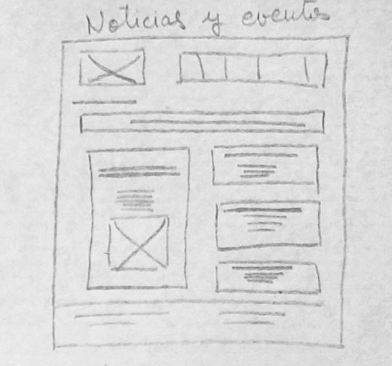 Noticias y eventos